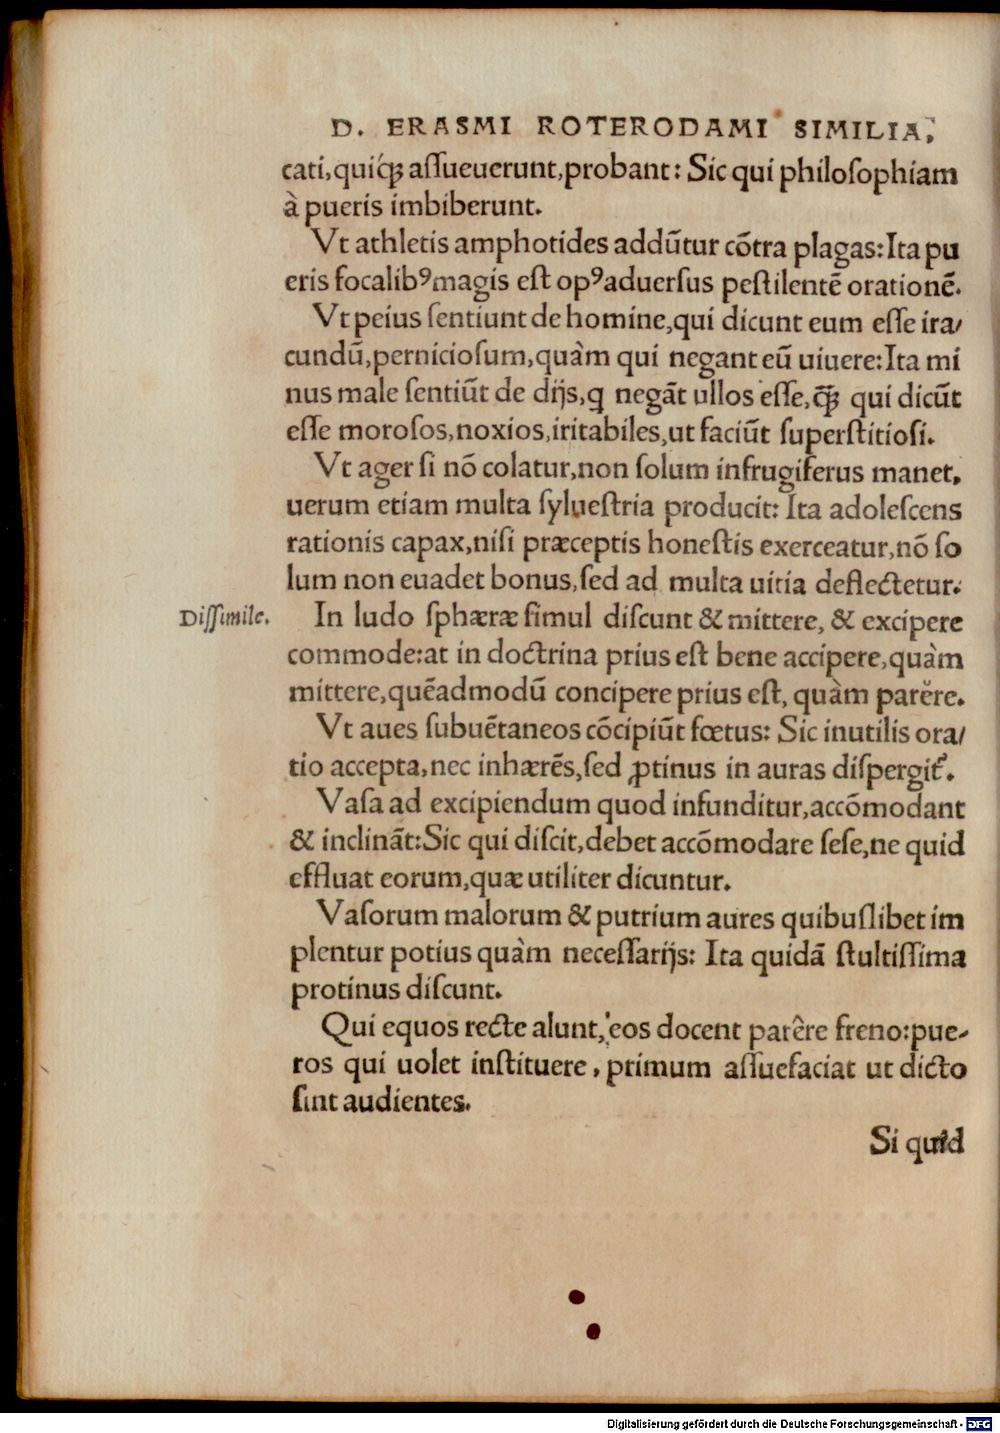 D. ERASMI ROTERODAMI SIMILIA,
cati, quiq́ꝫ aſſueuerunt, probant: Sic qui philoſophiam
à pueris imbiberunt.
Vt athletis amphotides addũtur cõtra plagas: Ita pu
eris focalibꝰ magis eſt opꝰ aduerſus peſtilentẽ orationẽ.
Vt peius ſentiunt de homine, qui dicunt eum eſſe ira/
cundũ, pernicioſum, quàm qui negant eũ uiuere: Ita mi
nus male ſentiũt de dijs, q negãt ullos eſſe, q̃ꝫ qui dicũt
eſſe moroſos, noxios, iritabiles, ut faciũt ſuperſtitioſi.
Vt ager ſi nõ colatur, non ſolum infrugiferus manet,
uerum etiam multa ſylueſtria producit: Ita adoleſcens
rationis capax, niſi præceptis honeſtis exerceatur, nõ ſo
lum non euadet bonus, ſed ad multa uitia deflectetur.
Diſſimile. In ludo ſphæræ ſimul diſcunt & mittere, & excipere
commode: at in doctrina prius eſt bene accipere, quàm
mittere, quẽadmodũ concipere prius eſt, quàm parĕre.
Vt aues ſubuẽtaneos cõcipiũt fœtus: Sic inutilis ora/
tio accepta, nec inhærẽs, ſed ꝓtinus in auras diſpergit᷑.
Vaſa ad excipiendum quod infunditur, accõmodant
& inclinãt: Sic qui diſcit, debet accõmodare ſeſe, ne quid
effluat eorum, quæ utiliter dicuntur.
Vaſorum malorum & putrium aures quibuſlibet im
plentur potius quàm neceſſarijs: Ita quidã ſtultiſſima
protinus diſcunt.
Qui equos recte alunt, eos docent parêre freno: pue-
ros qui uolet inſtituere, primum aſſuefaciat ut dicto
ſint audientes.
Si quid
Digitalisierung gefördert durch die Deutsche Forschungsgemeinschaft - DFG